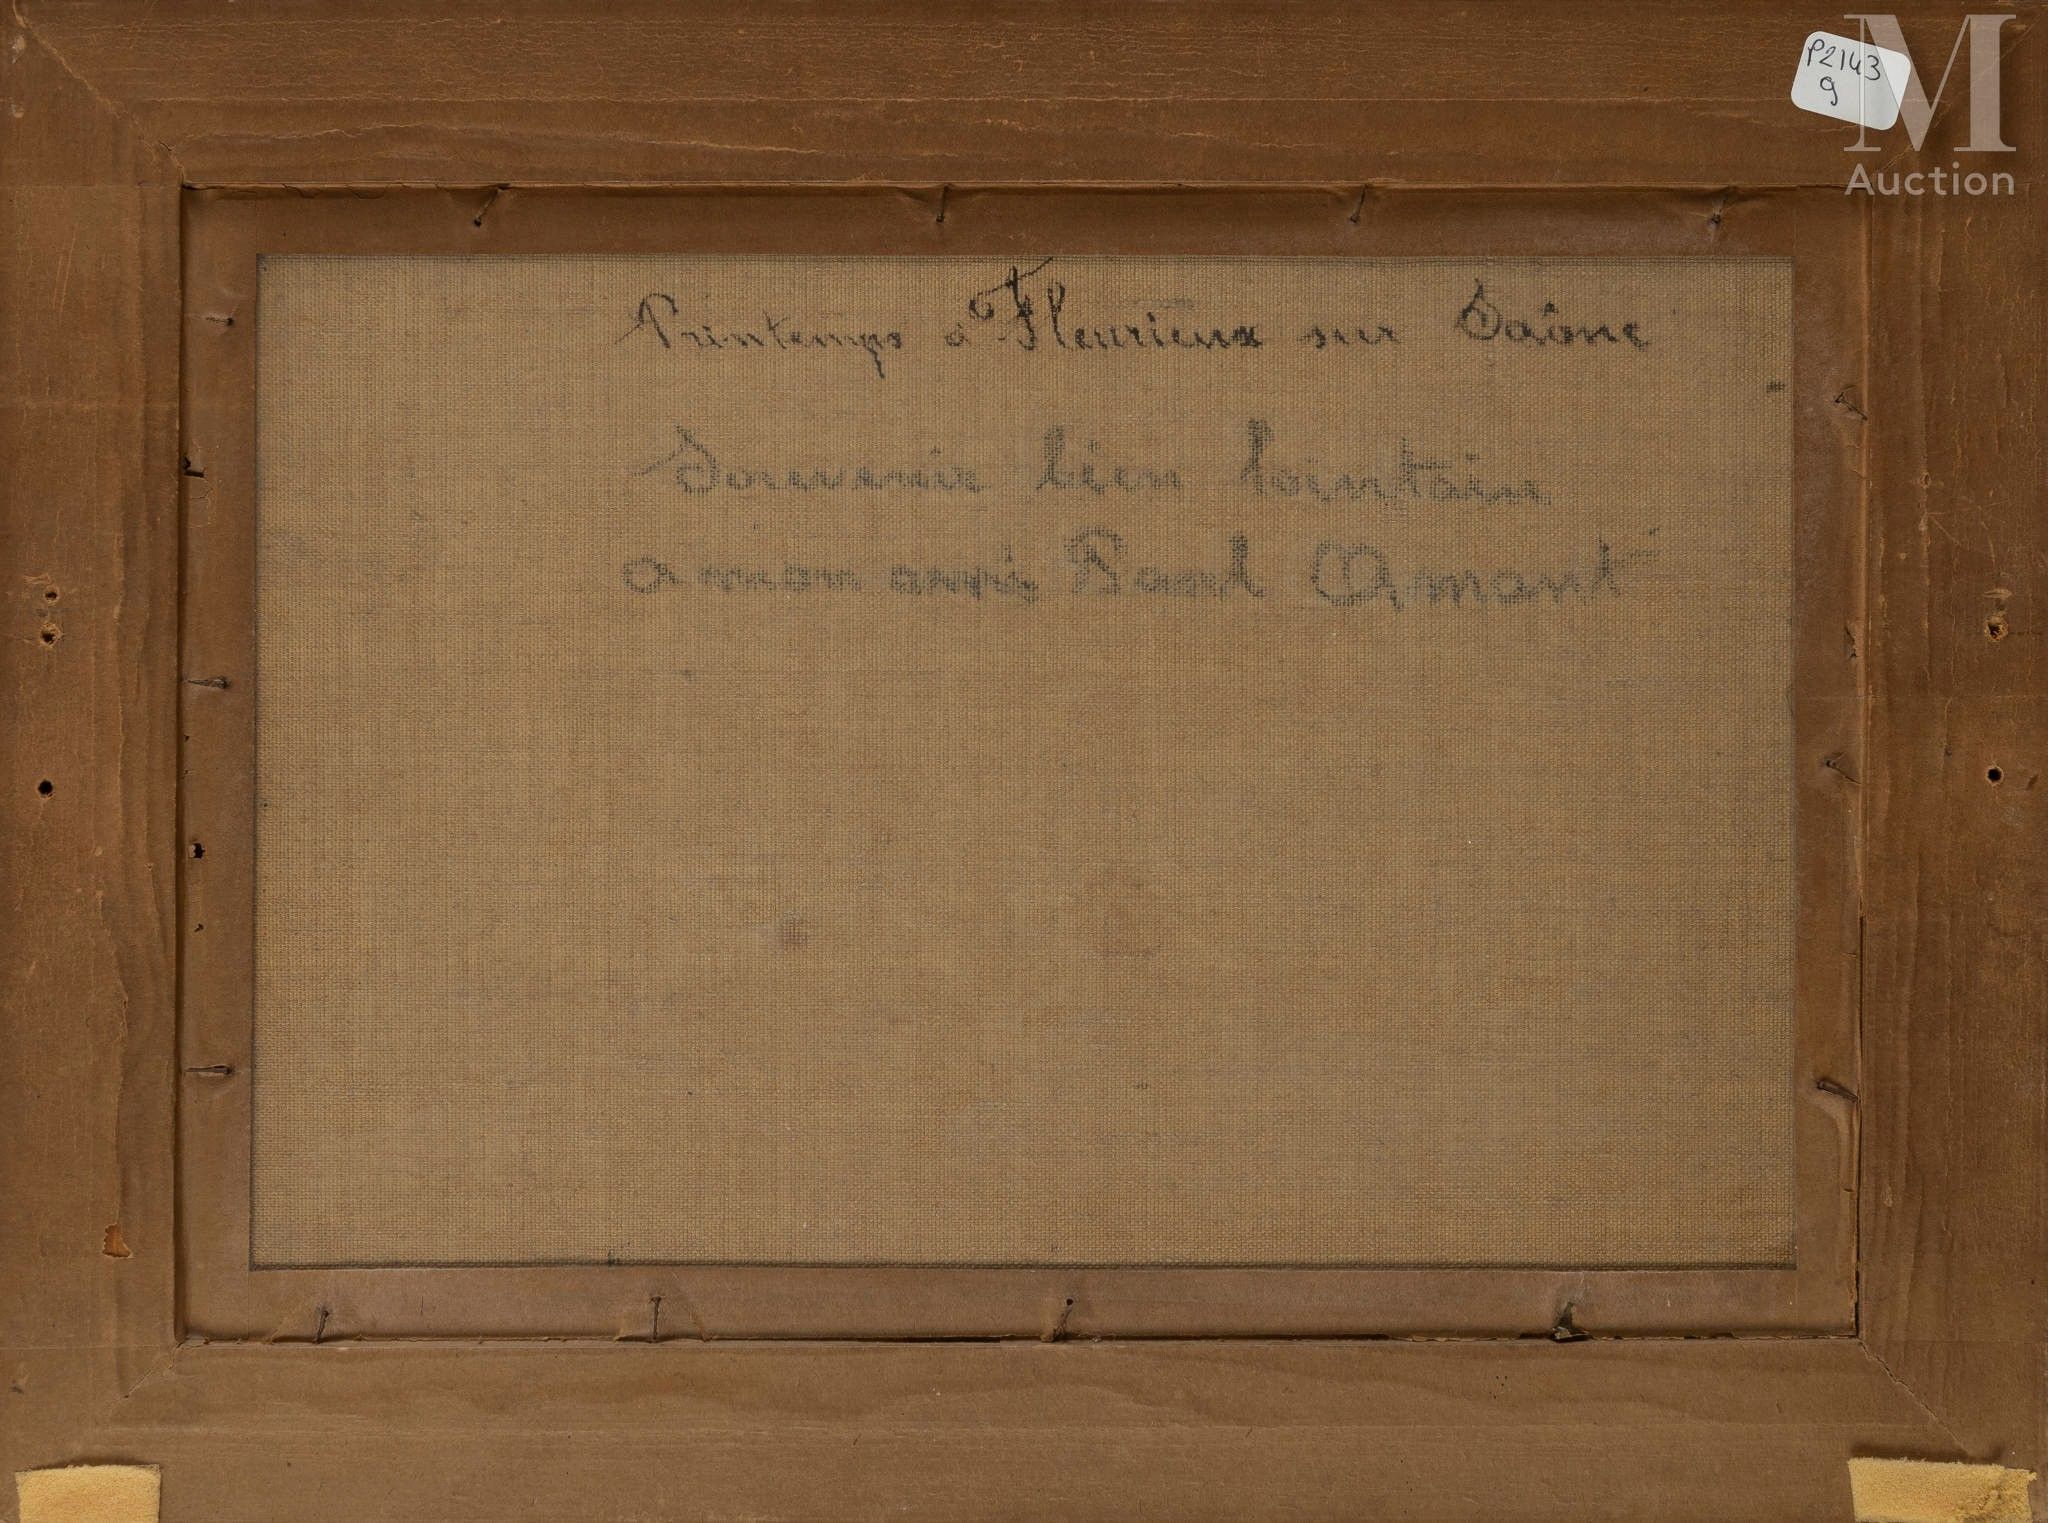 P2143
9
M
Auction
Printemps à Fleurieux sur Saône
Souvenir bien lointain
a mon ami Paul Amant